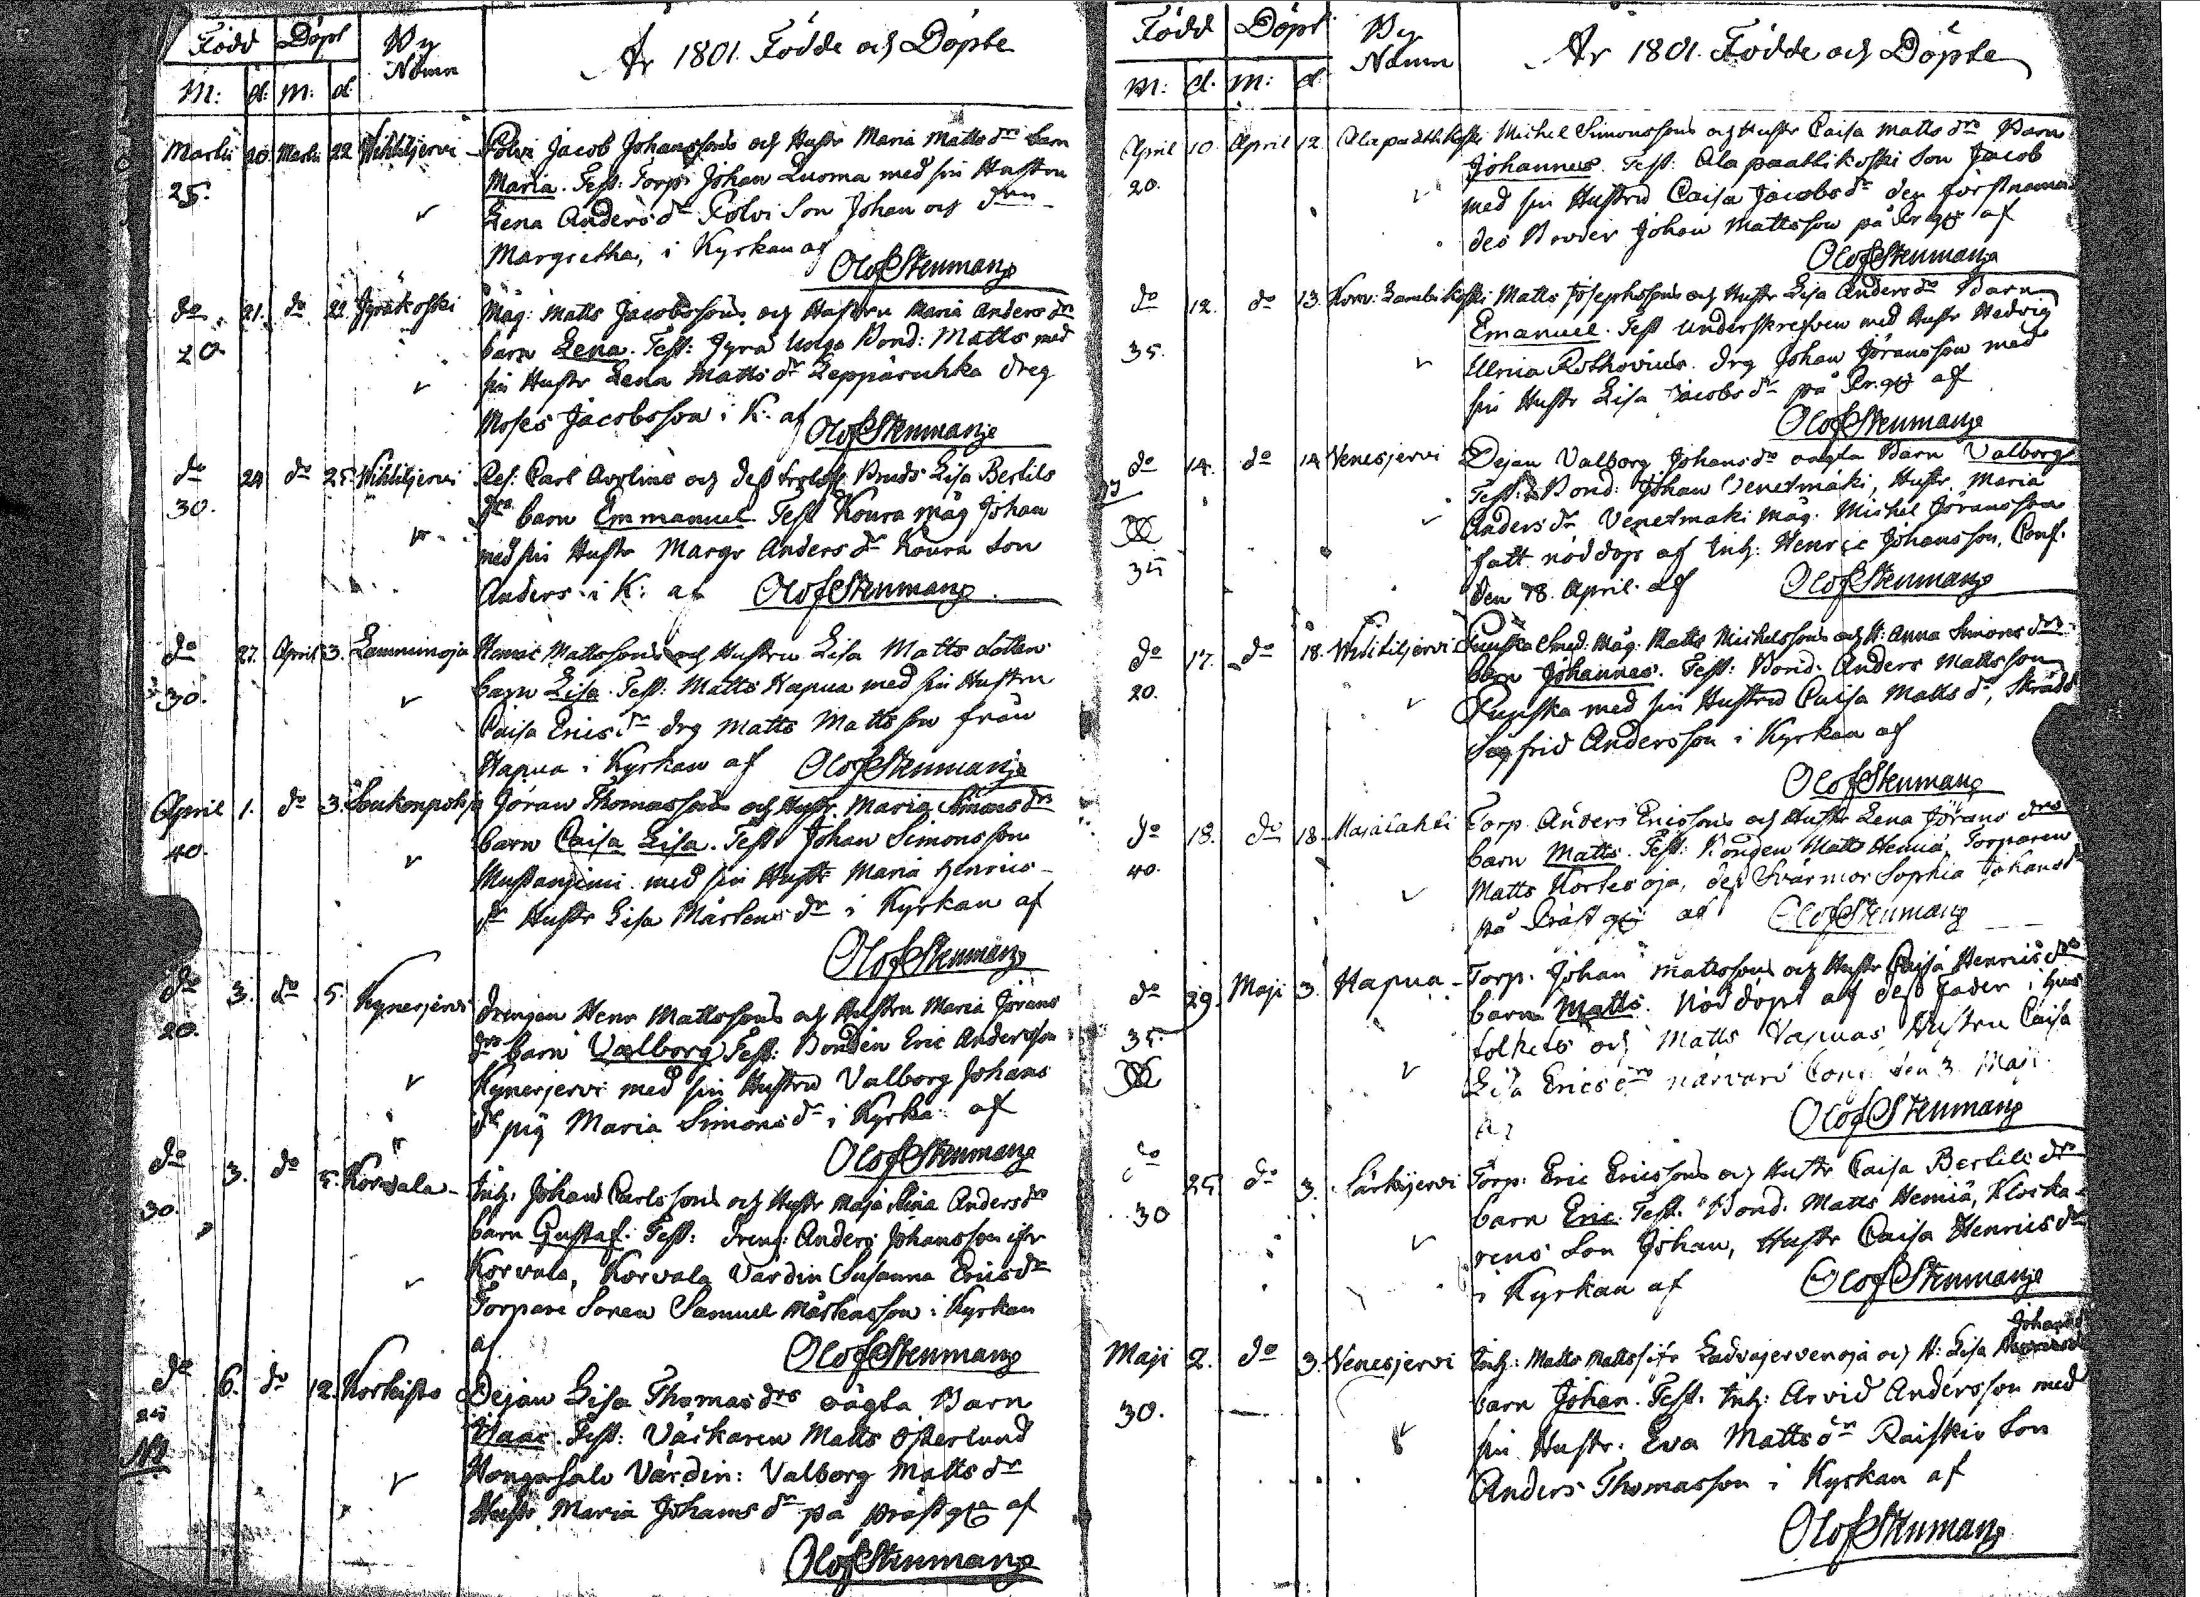 Född Döpt By Namn År 1801. Födde och Döpte
M: d: M: d:
Martii 20. Martii 22 Folvi Jacob Johanssons och Hustr Maria Matts drs barn
25. Maria. Test: Torp: Johan Luoma med sin Hustru
Lena Anders dr Folvi Son Johan och
Margretha, i Kyrkan af
Olof Stenman
do 21. do 22 Jyräkoski Måg: Matts Jacobssons och Hustru Maria Anders drs
20. barn Lena. Test: Jyrä Bond: Matts med
sin Hustr Lena Matts dr Leppäruhka dreg
Moses Jacobsson i K: af Olof Stenman
do 24 do 25 Carl och Bruds Lisa Bertils
30. drs barn Emmanuel Test Koura måg Johan
med sin Hustr Margr Anders dr Koura Son
Anders i K: af Olof Stenman
do 27. April 3. Lamminoja Henric Mattssons och Hustru Lisa Matts dotters
30. barn Lisa. Test: Matts Hapua med sin Hustru
Caisa Erics dr drg Matts Mattsson från
Hapua i Kyrkan af Olof Stenman
April 1. do 3. Jöran Thomassons och Hustr. Maria Simons drs
40. barn Caisa Lisa. Test: Johan Simonsson
Mustaniemi med sin Hustr Maria Henrics
dr Hustr Lisa Mårtens dr i Kyrkan af
Olof Stenman
do 3. do 5. Kynerjervi drengen Henr Mattssons och Hustru Maria Jörans
20. drs barn Valborg Test: Bonden Eric Andersson
Kynerjervi med sin Hustru Valborg Johans
dr pig Maria Simons dr i Kyrka: af
Olof Stenman
do 3. do 5. Korvala Inh: Johan Carlssons och Hustr Maja Stina Anders drs
30. barn Gustaf. Test: dreng: Anders Johansson ifr
Korvala, Korvala Värdin Susanna Erics dr
Torpare Sonen Samuel Mårtensson i Kyrkan
af Olof Stenman
do 6. do 12. Korkisto Dejan Lisa Thomas drs oägta Barn
25 Isaac. Test: Väckaren Matts Österlund
Hongasalo Värdin: Valborg Matts dr
Hustr Maria Johans dr på Prästg af
Olof Stenman
Född Döpt By Namn År 1801. Födde och Döpte
M: d. M: d.
April 10. April 12. Alapaattikoski Michel Simonssons och Hustr Caisa Matts drs Barn
20. Johannes. Test: Alapaattikoski Son Jacob
med sin Hustru Caisa Jacobs dr den förstnamn
des Broder Johan Mattsson på Pr.g af
Olof Stenman
do 12. do 13. Matts Josephssons och Hustr Lisa Anders drs Barn
35. Emanuel. Test underskrefven med Hustr Hedvig
Ulrica Rothovius. drg Johan Jöransson med
sin Hustr Lisa Jacobs dr på Pr.g af
Olof Stenman
do 14. do 14 Venesjervi Dejan Valborg Johans drs oägta Barn Valborg
Test: Bond: Johan Venetmäki, Hustr. Maria
Anders dr Venetmäki måg. Michel Jöransson
35 fått nöddop af Inh: Henric Johansson, Conf.
den 18. April. af Olof Stenman
do 17. do 18. Måg: Matts Michelssons och H: Anna Simons drs
20. barn Johannes. Test: Bond: Anders Mattsson
med sin Hustru Caisa Matts dr, Skrädd
Sigfrid Andersson i Kyrkan af
Olof Stenman
do 18. do 18. Majalahti Torp. Anders Ericssons och Hustr Lena Jörans drs
40. barn Matts. Test: Bonden Matts Hemiä, Torparen
Matts Kortesoja, dess Svärmor Sophia Johans dr
på Prästg af Olof Stenman
do 29. Maji 3. Hapua Torp. Johan Mattssons och Hustr Caisa Henrics drs
35. barn Matts. Nöddöpt af dess fader i hus
folkets och Matts Hapuas Hustru Caisa
Lisa Erics drs närvaro Conf. den 3. Maji.
af Olof Stenman
do 25 do 3. Särkijervi Torp: Eric Ericssons och Hustr Caisa Bertils drs
30 barn Eric. Test. Bond. Matts Hemiä, Klocka
rens Son Johan, Hustr Caisa Henrics dr
i Kyrkan af Olof Stenman
Maji 2. do 3. Venesjervi Inh: Matts Matts ifr Ladvajervenoja och H: Lisa Johans
30. barn Johan. Test. Inh: Arvid Andersson med
sin Hustr. Eva Matts dr Raiskio Son
Anders Thomasson i Kyrkan af
Olof Stenman